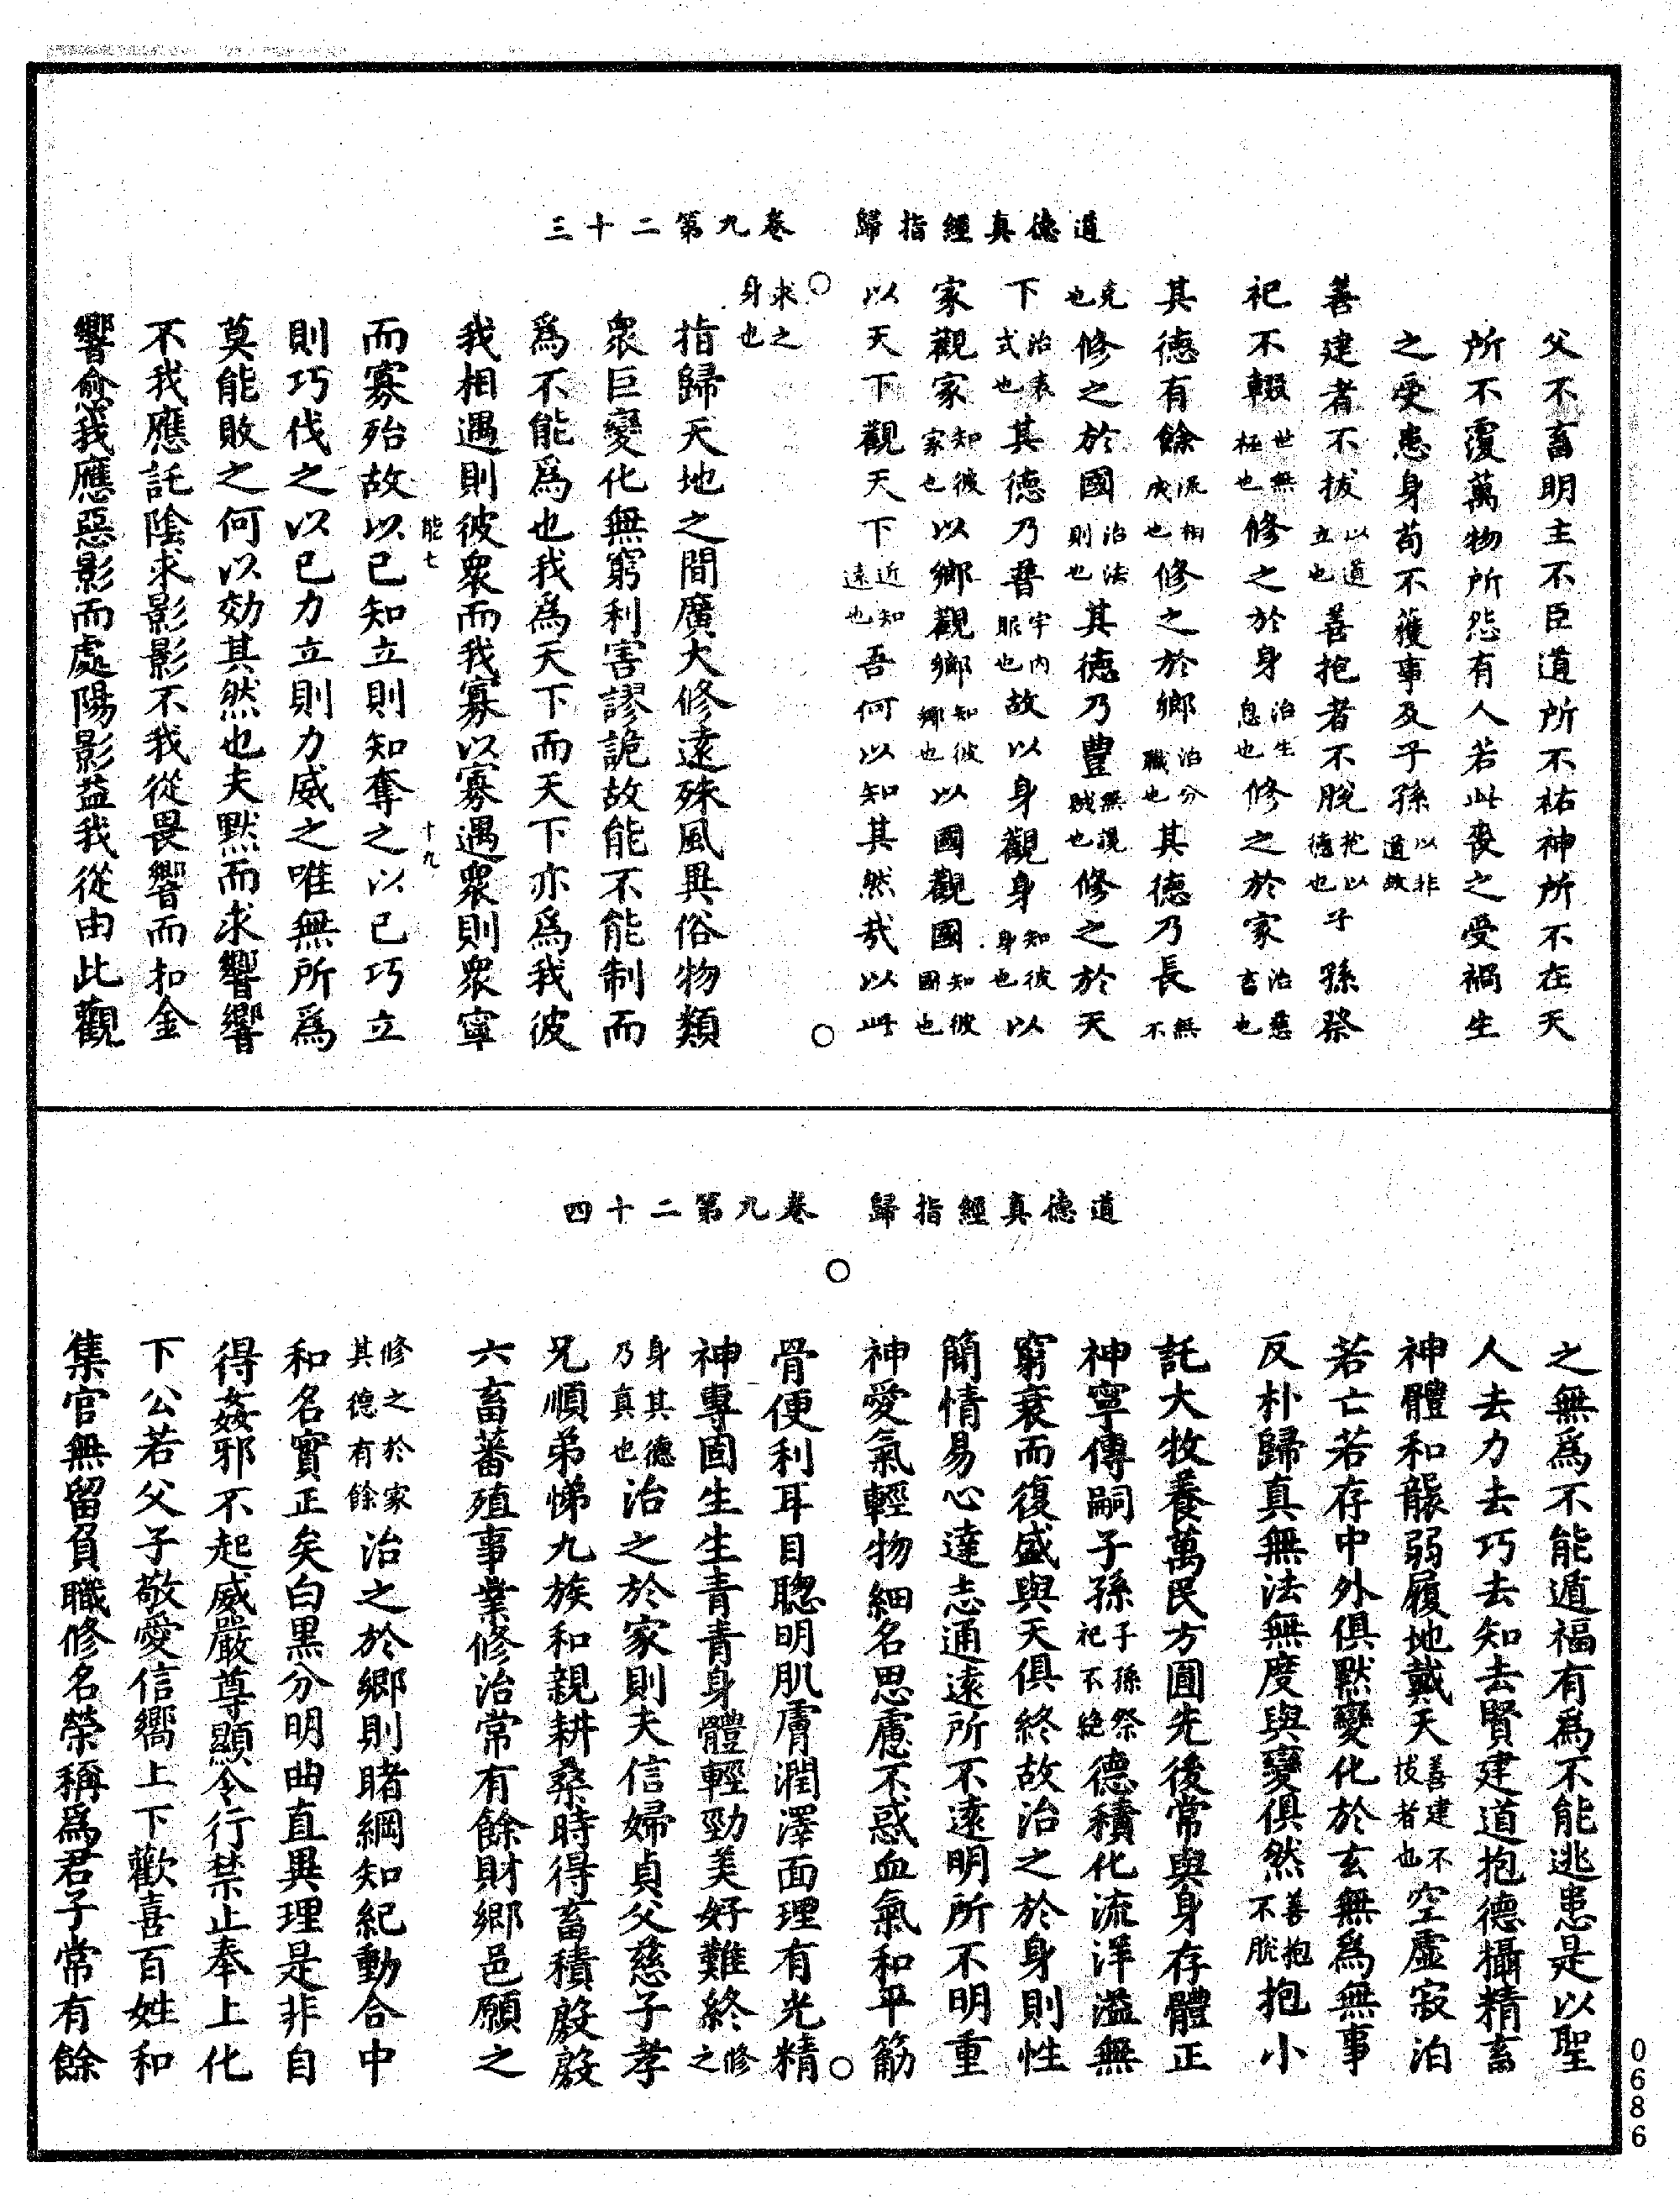 道德真經指歸　卷九第二十三
父不畜明主不臣道所不祐神所不在天
所不覆萬物所怨有人若此喪之受禍生
之受患身苟不獲事及子孫以非道故
善建者不拔以道立也善抱者不脫抱以德也子孫祭
祀不輟世無極也修之於身治生息也修之於家治慈吉也
其德有餘流相成也修之於鄉治分職也其德乃長無不
克也修之於國治法則也其德乃豐無謾賊也修之於天
下治表式也其德乃普宇內服也故以身觀身知彼身也以
家觀家知彼家也以鄉觀鄉知彼鄉也以國觀國知彼國也
以天下觀天下近知遠也吾何以知其然哉以此
求之身也
指歸天地之間廣大修遠殊風異俗物類
衆巨變化無窮利害謬詭故能不能制而
爲不能爲也我爲天下而天下亦爲我彼
我相遇則彼衆而我寡以寡遇衆則衆寧
能七　十九
而寡殆故以已知立則知奪之以已巧立
則巧伐之以已力立則力威之唯無所爲
莫能敗之何以効其然也夫默而求響響
不我應託陰求影影不我從畏響而扣金
響愈我應惡影而處陽影益我從由此觀
道德真經指歸　卷九第二十四
之無爲不能遁福有爲不能逃患是以聖
人去力去巧去知去賢建道抱德攝精畜
神體和襲弱履地戴天善建不拔者也空虛寂泊
若亡若存中外俱默變化於玄無爲無事
反朴歸真無法無度與變俱然善抱不脫抱小
託大牧養萬民方圓先後常與身存體正
神寧傳嗣子孫子孫祭祀不絶德積化流洋溢無
窮衰而復盛與天俱終故治之於身則性
簡情易心達志通遠所不遠明所不明重
神愛氣輕物細名思慮不惑血氣和平筋
骨便利耳目聦明肌膚潤澤面理有光精
神專固生生青青身體輕勁美好難終修之
身其德乃真也治之於家則夫信婦貞父慈子孝
兄順弟悌九族和親耕桑時得畜積殷殷
六畜蕃殖事業修治常有餘財鄉邑願之
修之於家其德有餘治之於鄉則睹綱知紀動合中
和名實正矣白黑分明曲直異理是非自
得姦邪不起威嚴尊顯令行禁止奉上化
下公若父子敬愛信嚮上下歡喜百姓和
集官無留負職修名榮稱爲君子常有餘
0686